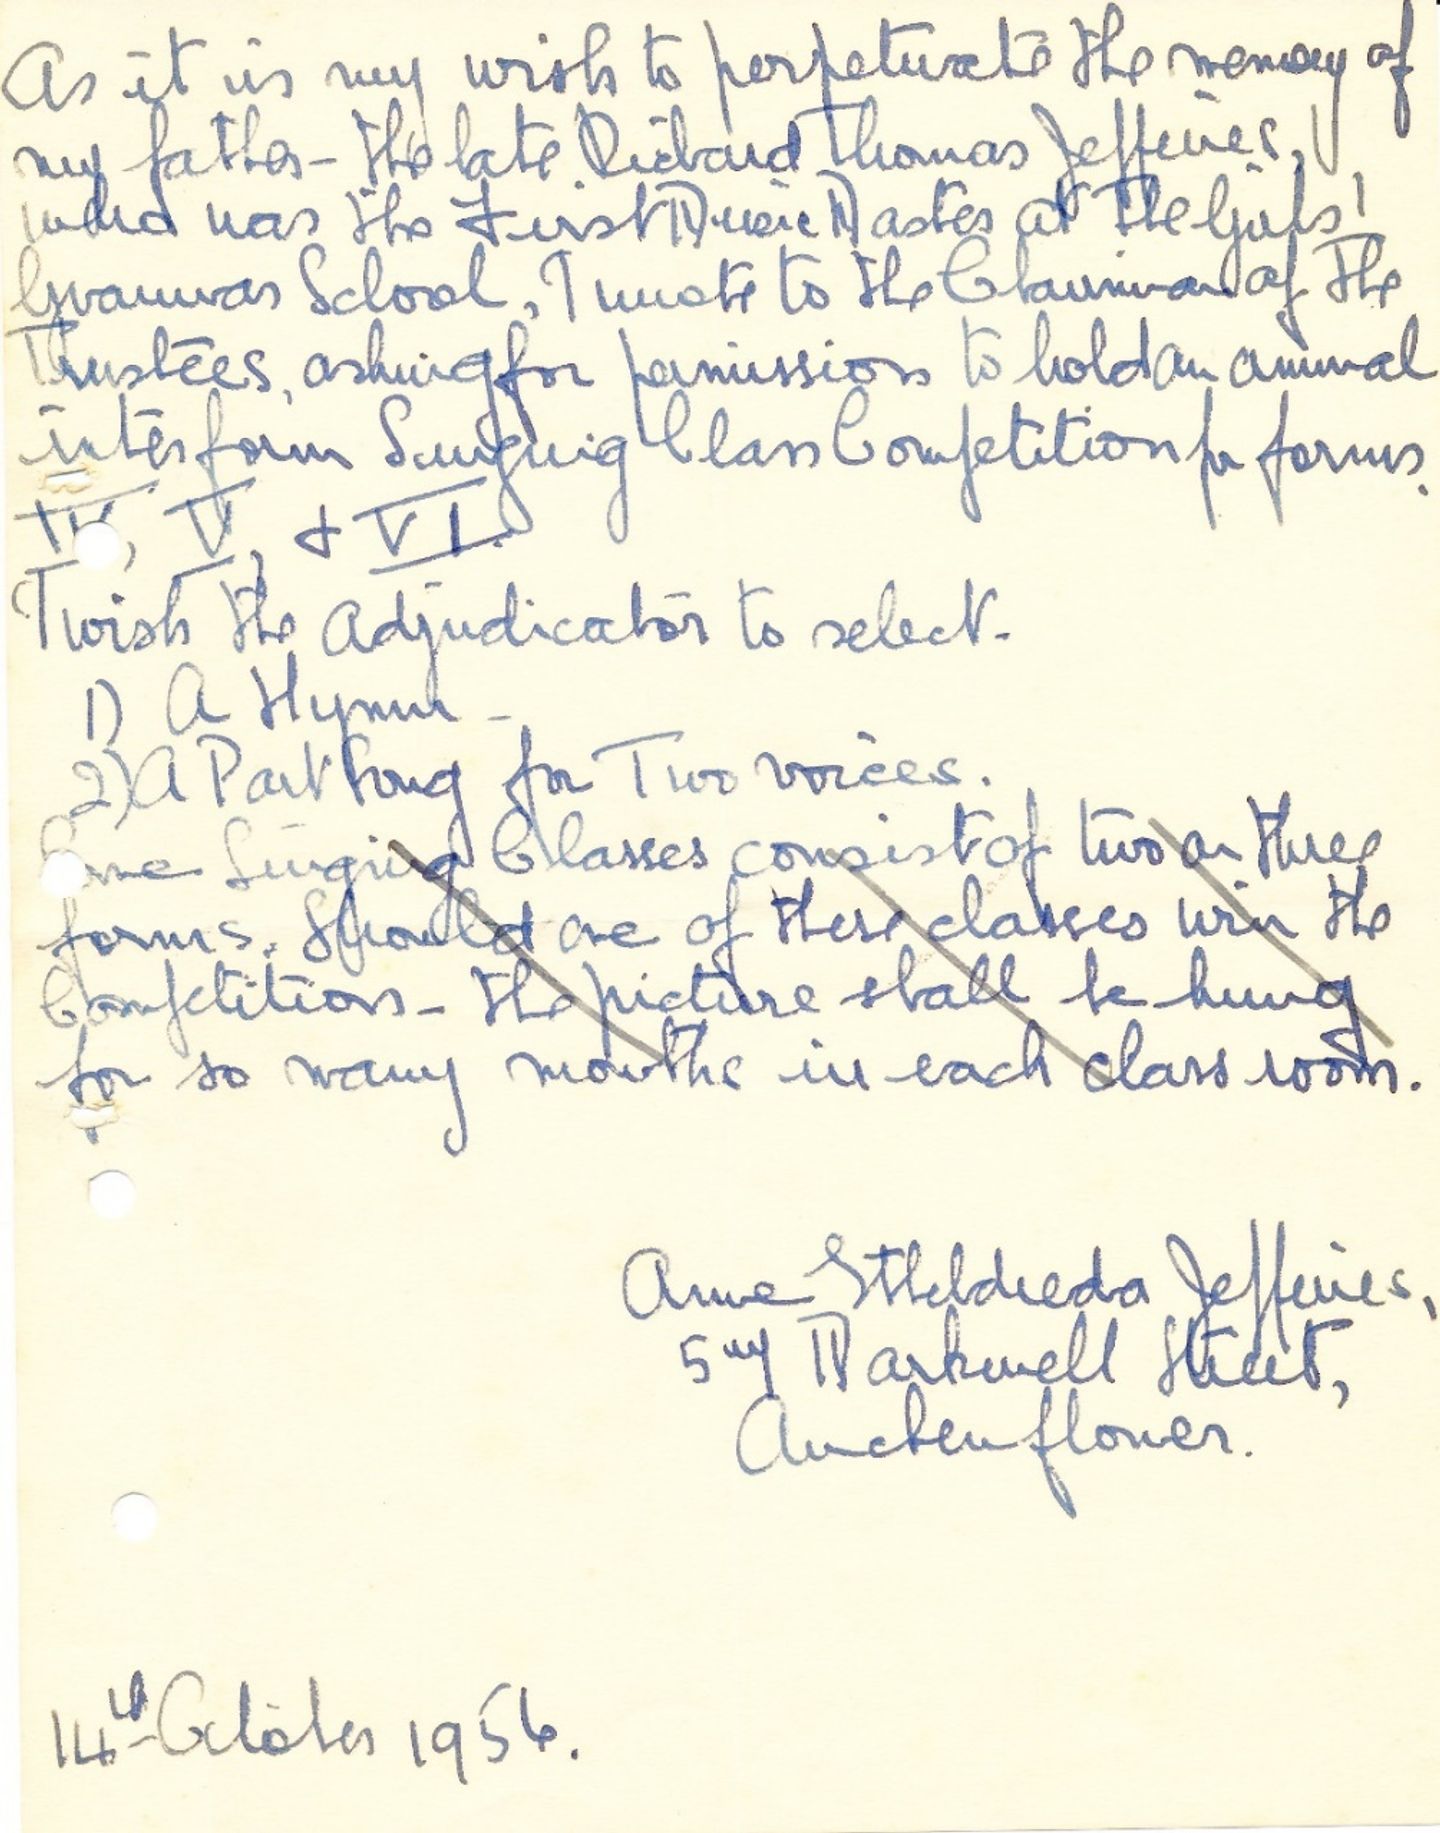 As it is my wish to perpetuate the memory of
my father - the late Richard Thomas Jefferies,
who was the First Music Master at the Girls'
Grammar School, I wrote to the Chairman of the
Trustees, asking for permission to hold an annual
interform Singing Class Competition for forms.
IV, V, & VI.
I wish the Adjudicator to select -
1) A Hymn -
2) A Part Song for Two voices.
Some Singing Classes consist of two or three
forms. Should one of these classes win the
Competition - the picture shall be hung
for so many months in each class room.
Anne Etheldreda Jefferies,
Markwell Street,
Auchenflower.
14th October 1956.